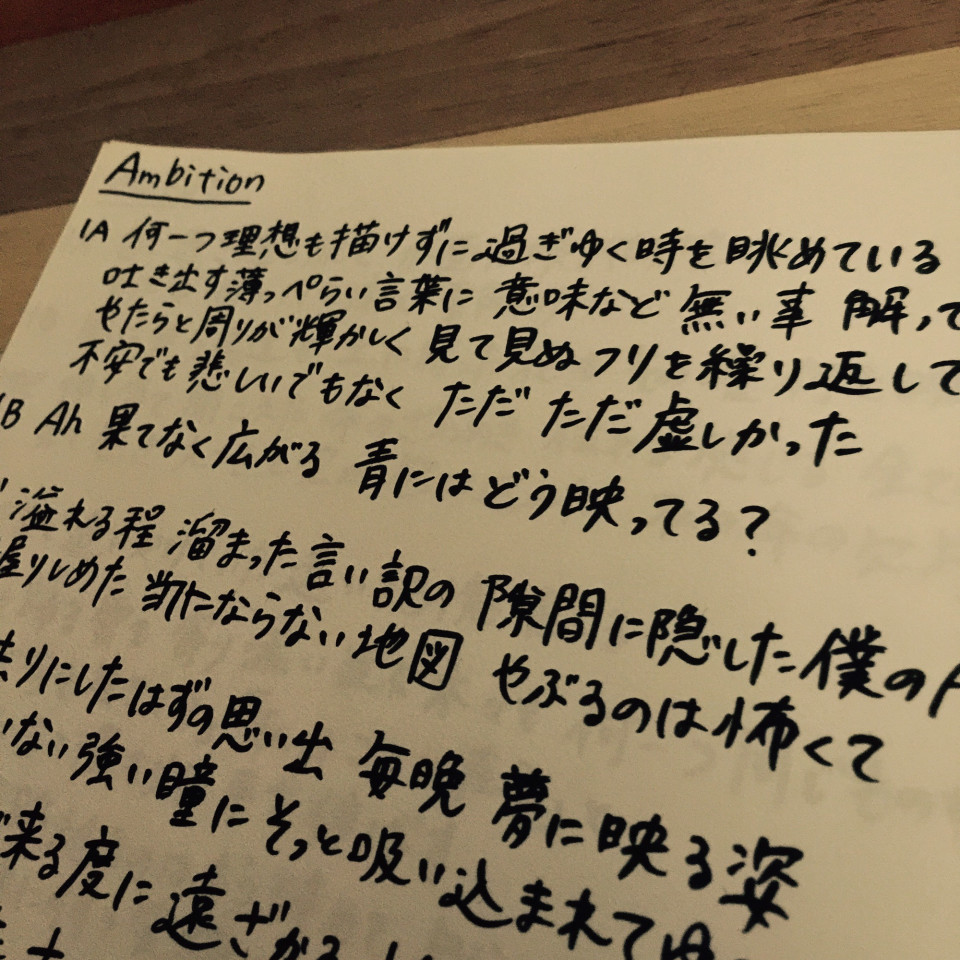 Ambition
1A 何一つ理想も描けずに 過ぎゆく時を眺めている
吐き出す薄っぺらい言葉に 意味など 無い事 解って
やたらと周りが輝かしく 見て見ぬフリを繰り返して
不安でも悲しいでもなく ただ ただ 虚しかった
B Ah 果てなく広がる 青にはどう映ってる?
溢れる程 溜まった言い訳の 隙間に隠した僕のA
握りしめた 当てにならない地図 やぶるのは怖くて
りにしたはずの思い出 毎晩 夢に映る姿
ない強い瞳に そっと吸い込まれて
来る度に 遠ざかる